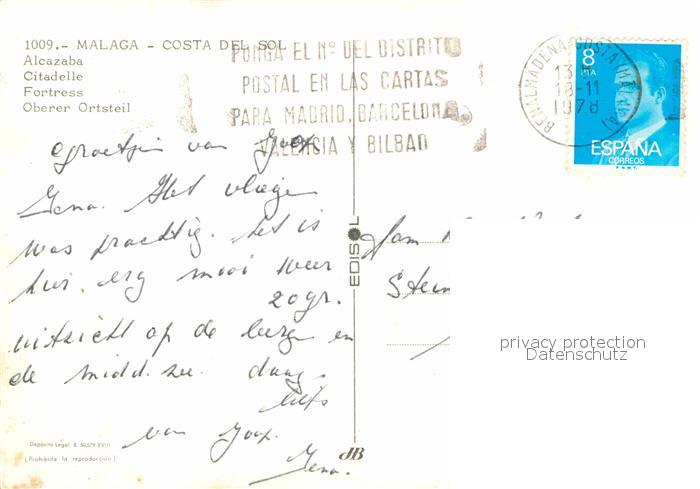 1009.- MALAGA - COSTA DEL SOL
Alcazaba
Citadelle
Fortress
Oberer Ortsteil
PONGA EL Nº DEL DISTRITO
POSTAL EN LAS CARTAS
PARA MADRID, BARCELONA,
VALENCIA Y BILBAO
BENALMADENA-COSTA (MALAGA)
18-11
1978
8
PTA
ESPAÑA
CORREOS
F.N.M.T.
groetjes van Joop
Jena. Het vliegen
was prachtig. het is
hier erg mooi weer
20gr.
uitzicht op de bergen en
de midd. zee. daag.
liefs
van Joop.
Jena.
EDISOL
Fam
privacy protection
Datenschutz
Depósito Legal, B. 50.579-XVIII
(Prohibida la reproducción)
JB